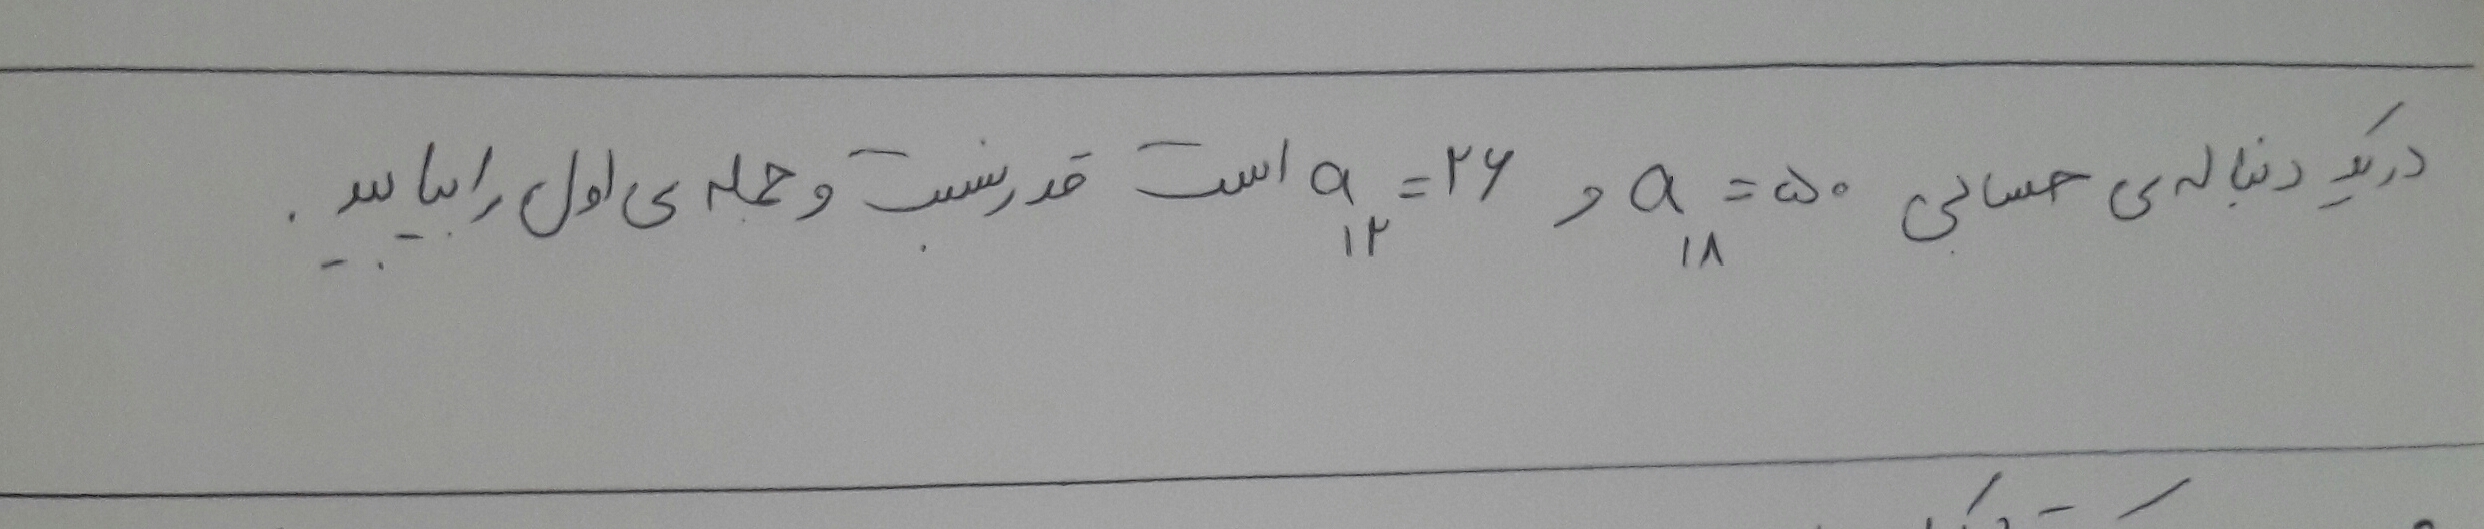 در یک دنباله ی حسابی a۱۸ = ۵۰ و a۱۲ = ۲۶ است قدرنسبت و جمله ی اول را بیابید .